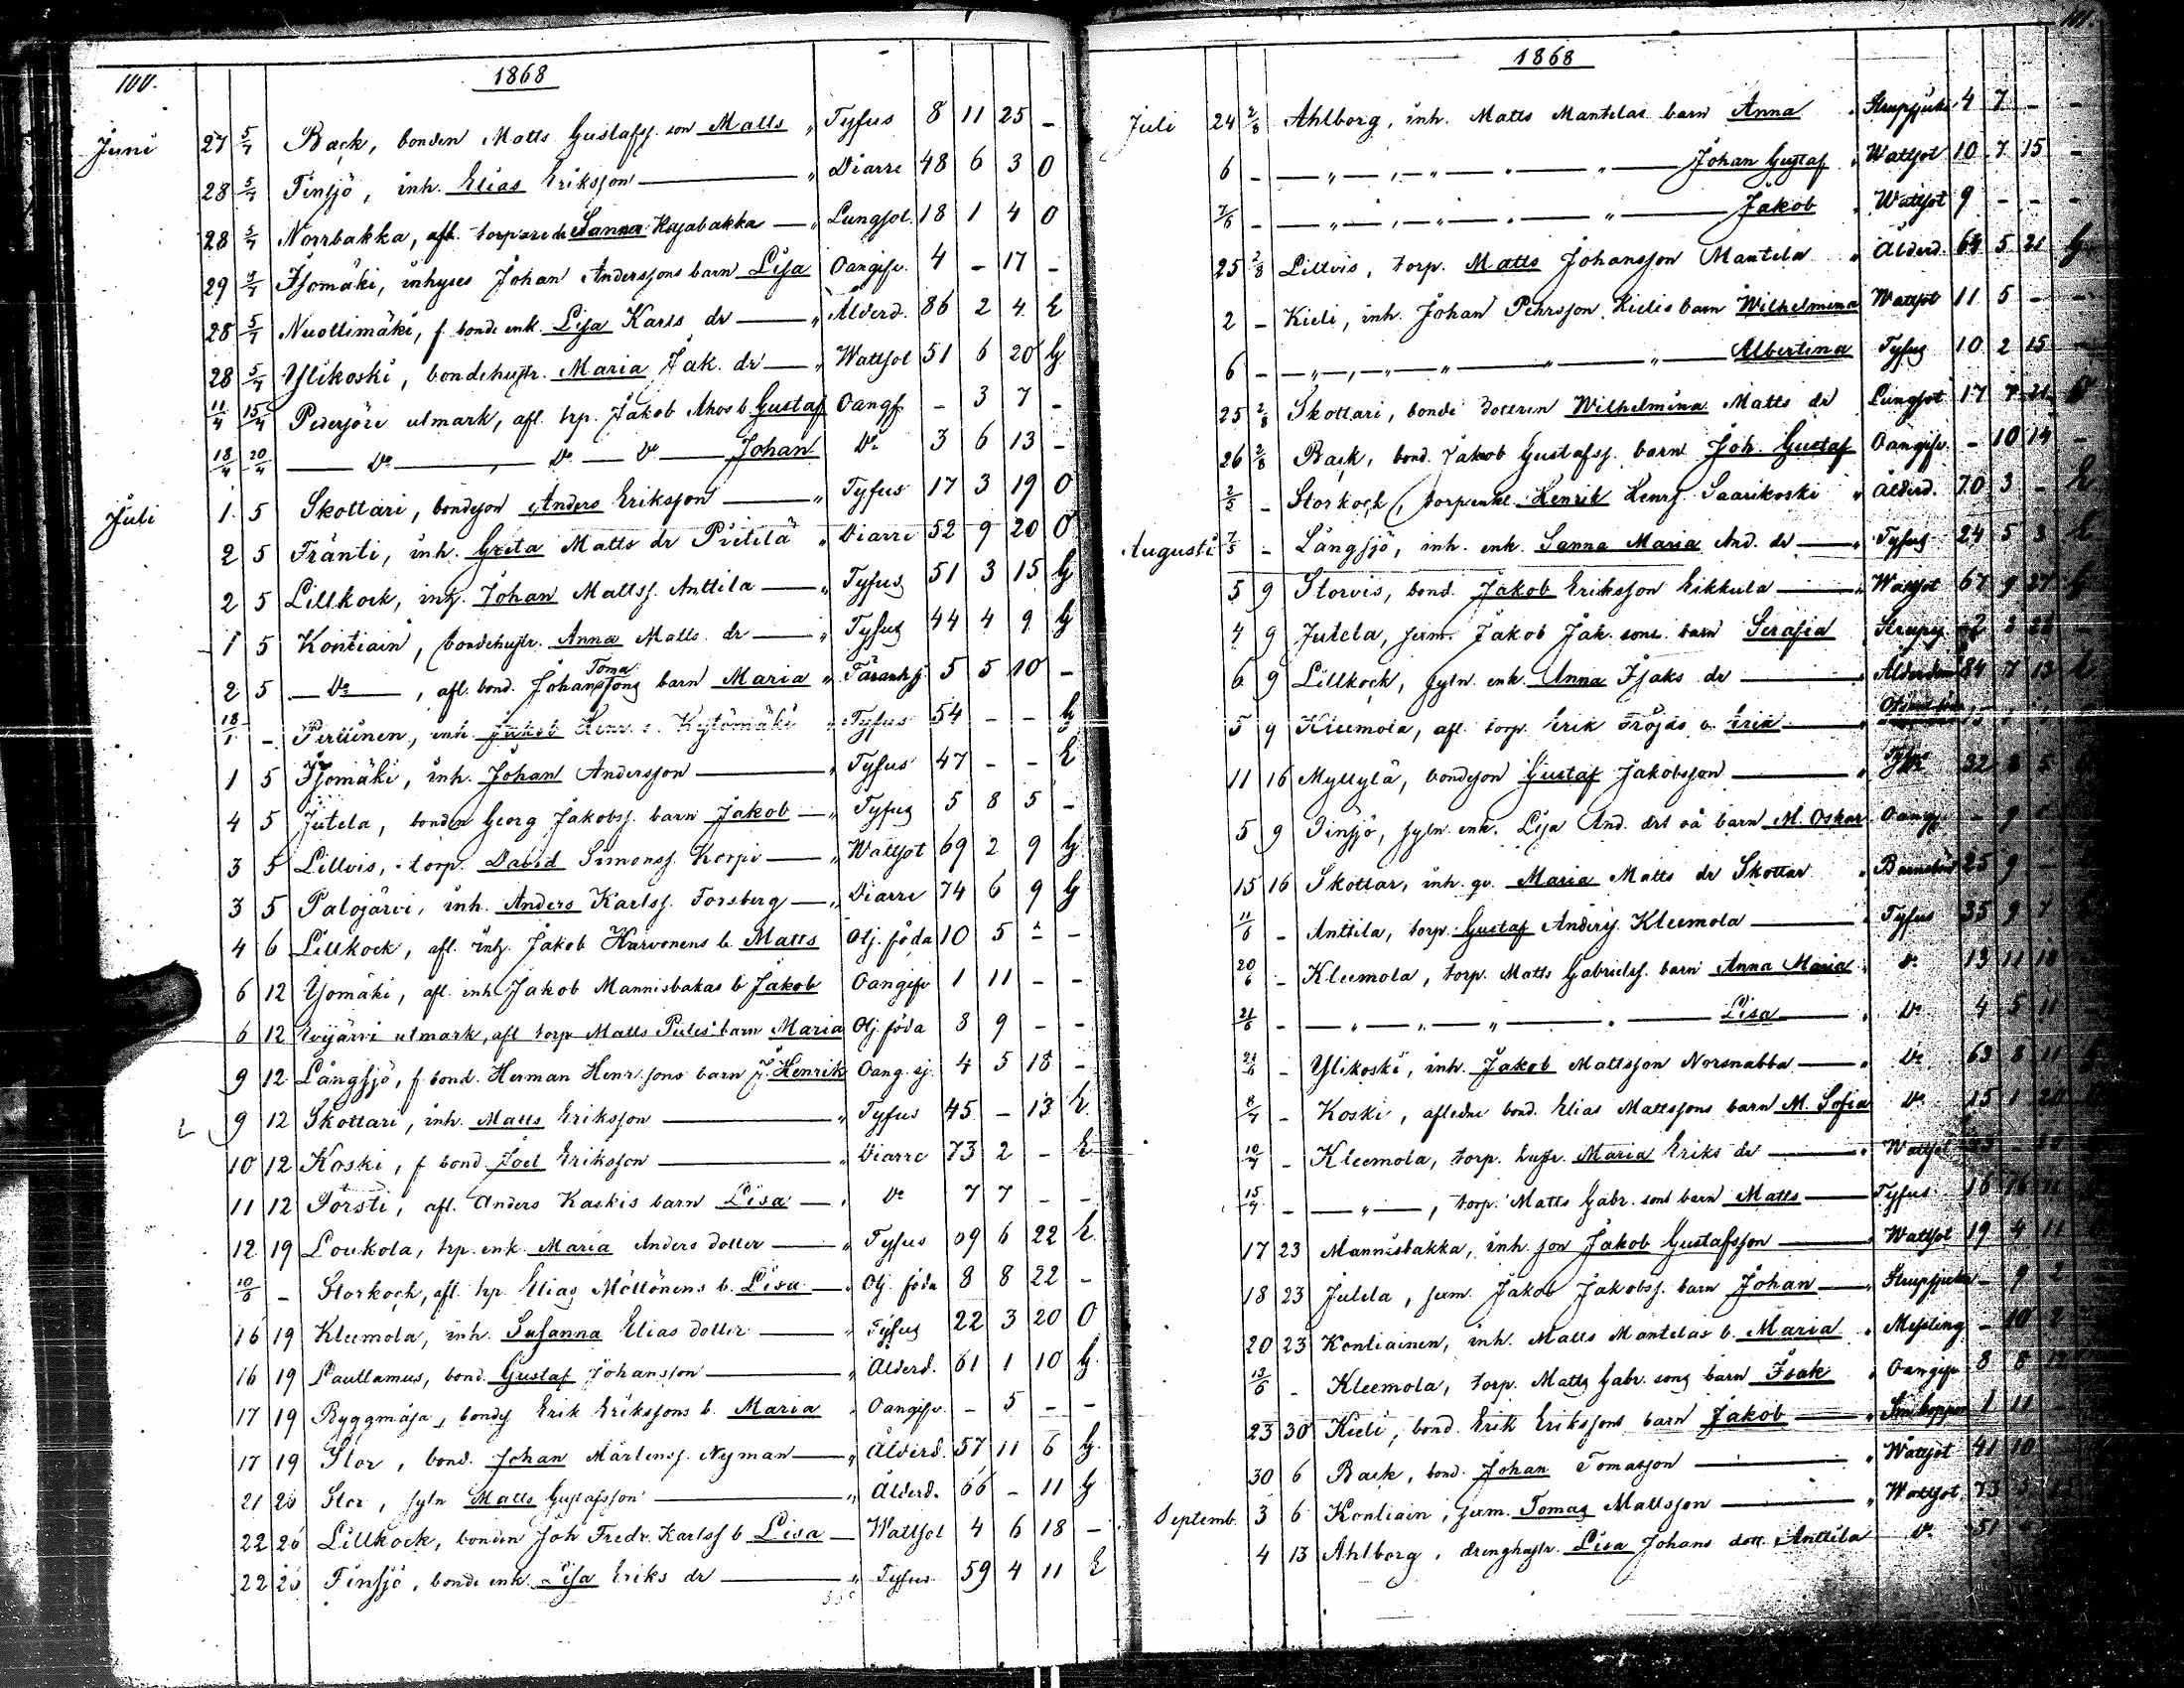 100.
1868
Juni 27 5/7 Back, bonden Matts Gustafss. son Matts " Tyfus 8 11 25 -
28 5/7 Finsjö, inh. Elias Eriksson " Diarre 48 6 3 O
28 5/7 Norrbakka, afl. torpare dr Sanna Kajabakka " Lungsot. 18 1 4 O
29 5/7 Isomäki, inhyses Johan Anderssons barn Lisa Oangifv. 4 - 17 -
28 5/7 Nuottimäki, f. bonde enk. Lisa Karls dr " Ålderd. 86 2 4 E
28 5/7 Ylikoski, bondehustr. Maria Jak. dr " Wattsot 51 6 20 G
11/4 15/4 Pedersöre utmark, afl. trp. Jakob Ahos b. Gustaf Oangf - 3 7 -
18/4 20/4 Do Do Do Johan Do 3 6 13 -
Juli 1 5 Skottari, bondeson Anders Eriksson " Tyfus 17 3 19 O
2 5 Tränti, inh. Greta Matts dr Pietilä " Diarre 52 9 20 O
2 5 Lillkock, inh. Johan Mattss. Anttila " Tyfus 51 3 15 G
1 5 Kontiain, bondehustr. Anna Matts dr " Tyfus 44 4 9 G
Toma
2 5 Do, afl. bond. Johanssons barn Maria " 5 5 10 -
18/1 - Perttinen, inh. Jakob Henr. s. Kytömäki " Tyfus 54 - - G
1 5 Isomäki, inh. Johan Andersson " Tyfus 47 - - E
4 5 Jutela, bonden Georg Jakobss. barn Jakob " Tyfus 5 8 5 -
3 5 Lillvis, torp. David Simonss. Korpi " Wattsot 69 2 9 G
3 5 Palojärvi, inh. Anders Karlss. Forsberg " Diarre 74 6 9 G
4 6 Lillkock, afl. inh. Jakob Harvonens b. Matts Otj. föda 10 5 - -
6 12 Isomäki, afl. inh. Jakob Mannisbakas b Jakob Oangifv 1 11 - -
6 12 Evijärvi utmark, afl torp Matts Pules barn Maria Otj. föda 8 9 - -
9 12 Långsjö, f. bond. Herman Henr.sons barn J. Henrik Oang. sj. 4 5 18 -
9 12 Skottari, inh. Matts Eriksson " Tyfus 45 - 13 E
10 12 Koski, f. bond. Joel Eriksson " Diarre 73 2 - E
11 12 Pörsti, afl. Anders Kaskis barn Lisa " Do 7 7 - -
12 19 Loukola, trp. enk. Maria Anders dotter " Tyfus 69 6 22 E
10/6 - Storkock, afl. trp. Elias Möttönens b. Lisa " Otj. föda 8 8 22 -
16 19 Kleemola, inh. Susanna Elias dotter " Tyfus 22 3 20 O
16 19 Paullamus, bond. Gustaf Johansson " Ålderd. 61 1 10 G
17 19 Byggmäsa, bondes. Erik Erikssons b. Maria " Oangifv. - 5 - -
17 19 Stor, bond. Johan Mårtenss. Nyman " Ålderd. 57 11 6 G.
21 26 Stor, sytn Matts Gustafsson " Ålderd. 66 - 11 G
22 26 Lillkock, bonden Joh. Fredr. Karlss b Lisa Wattsot 4 6 18 -
22 26 Finsjö, bonde enk. Lisa Eriks dr " Tyfus 59 4 11 E
101.
1868
Juli 24 2/8 Ahlborg, inh. Matts Mantelas barn Anna " Strupsjuka 4 7 - -
6 - Johan Gustaf " Wattsot 10 7 15 -
7/6 - Jakob " Wattsot 9 - - -
25 2/8 Lillvis, torp. Matts Johansson Mantela " Ålderd. 64 5 21 G
2 - Kieli, inh. Johan Pehrsson Kielis barn Wilhelmina Wattsot 11 5 - -
6 - Albertina Tyfus 10 2 15 -
25 2/8 Skottari, bonde dottren Wilhelmina Matts dr Lungsot 17 7 21
26 2/8 Back, bond. Jakob Gustafss. barn Joh. Gustaf Oangifv. - 10 14 -
2/5 - Storkock, torpenkl. Henrik Henrs. Saarikoski " Ålderd. 70 3 - E
Augusti 7/5 - Långsjö, inh. enk. Sanna Maria And. dr " Tyfus 24 5 3 E
5 9 Storvis, bond. Jakob Eriksson Eikkula " Wattsot 67 9 27 G
4 9 Jutela, Jakob Jak. sons barn Serafia Strupsj.
6 9 Lillkock, sytn. enk. Anna Isaks dr " Ålderdom 84 7 13 E
5 9 Kleemola, afl. torp. Erik Tröjäs b. Erik
11 16 Myllylä, bondeson Gustaf Jakobsson "
5 9 Finsjö, sytn. enk. Lisa And. drs oä barn M. Oskar Oangf. - 9
15 16 Skottar, inh. qv. Maria Matts dr Skottar " Barnsbörd 25 9 -
11/6 - Anttila, torp. Gustaf Anderss. Kleemola " Tyfus 35 9 7
20/6 - Kleemola, torp. Matts Gabrielss. barn Anna Maria " Do 13 11 18
21/6 - Lisa " Do 4 5 11
- Ylikoski, inh. Jakob Mattsson Norsnabba " Do 63 8 11
8/7 - Koski, afledne bond. Elias Mattssons barn M. Sofia Do 15 1 20
10/7 - Kleemola, torp. hustr. Maria Eriks dr " Wattsot
15/7 - , torp. Matts Gabr. sons barn Matts Tyfus
17 23 Mannisbakka, inh. son Jakob Gustafsson " Wattsot 19 4 11
18 23 Jutela, Jakob Jakobss. barn Johan " Strupsjuka - 9 2
20 23 Kontiainen, inh. Matts Mantelas b. Maria " Messling - 10 2
13/6 - Kleemola, torp. Matts Gabr. sons barn Isak " Oangifv 8 8
23 30 Kieli, bond. Erik Erikssons barn Jakob " Smkoppor 1 11
30 6 Back, bond. Johan Tomasson " Wattsot 41 10
Septemb. 3 6 Kontiain, Tomas Mattsson " Wattsot 73
4 13 Ahlborg, drenghustr. Lisa Johans dott. Anttila Do 51